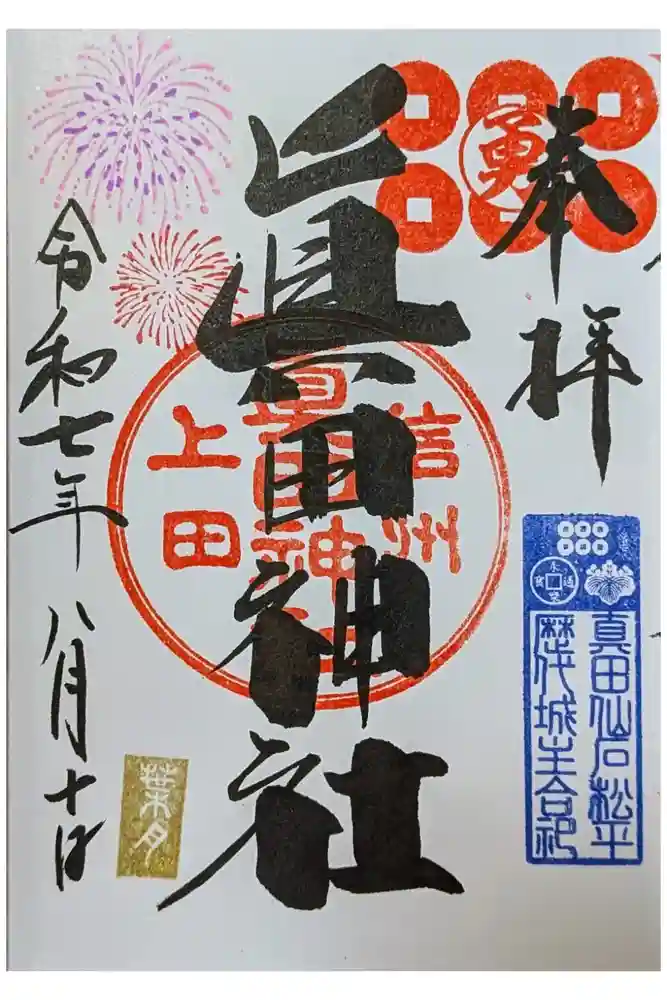 奉拝
勇
眞田神社
信州
眞田神社
上田
永楽通寳
真田仙石松平
歴代城主合祀
令和七年八月十日
葉月